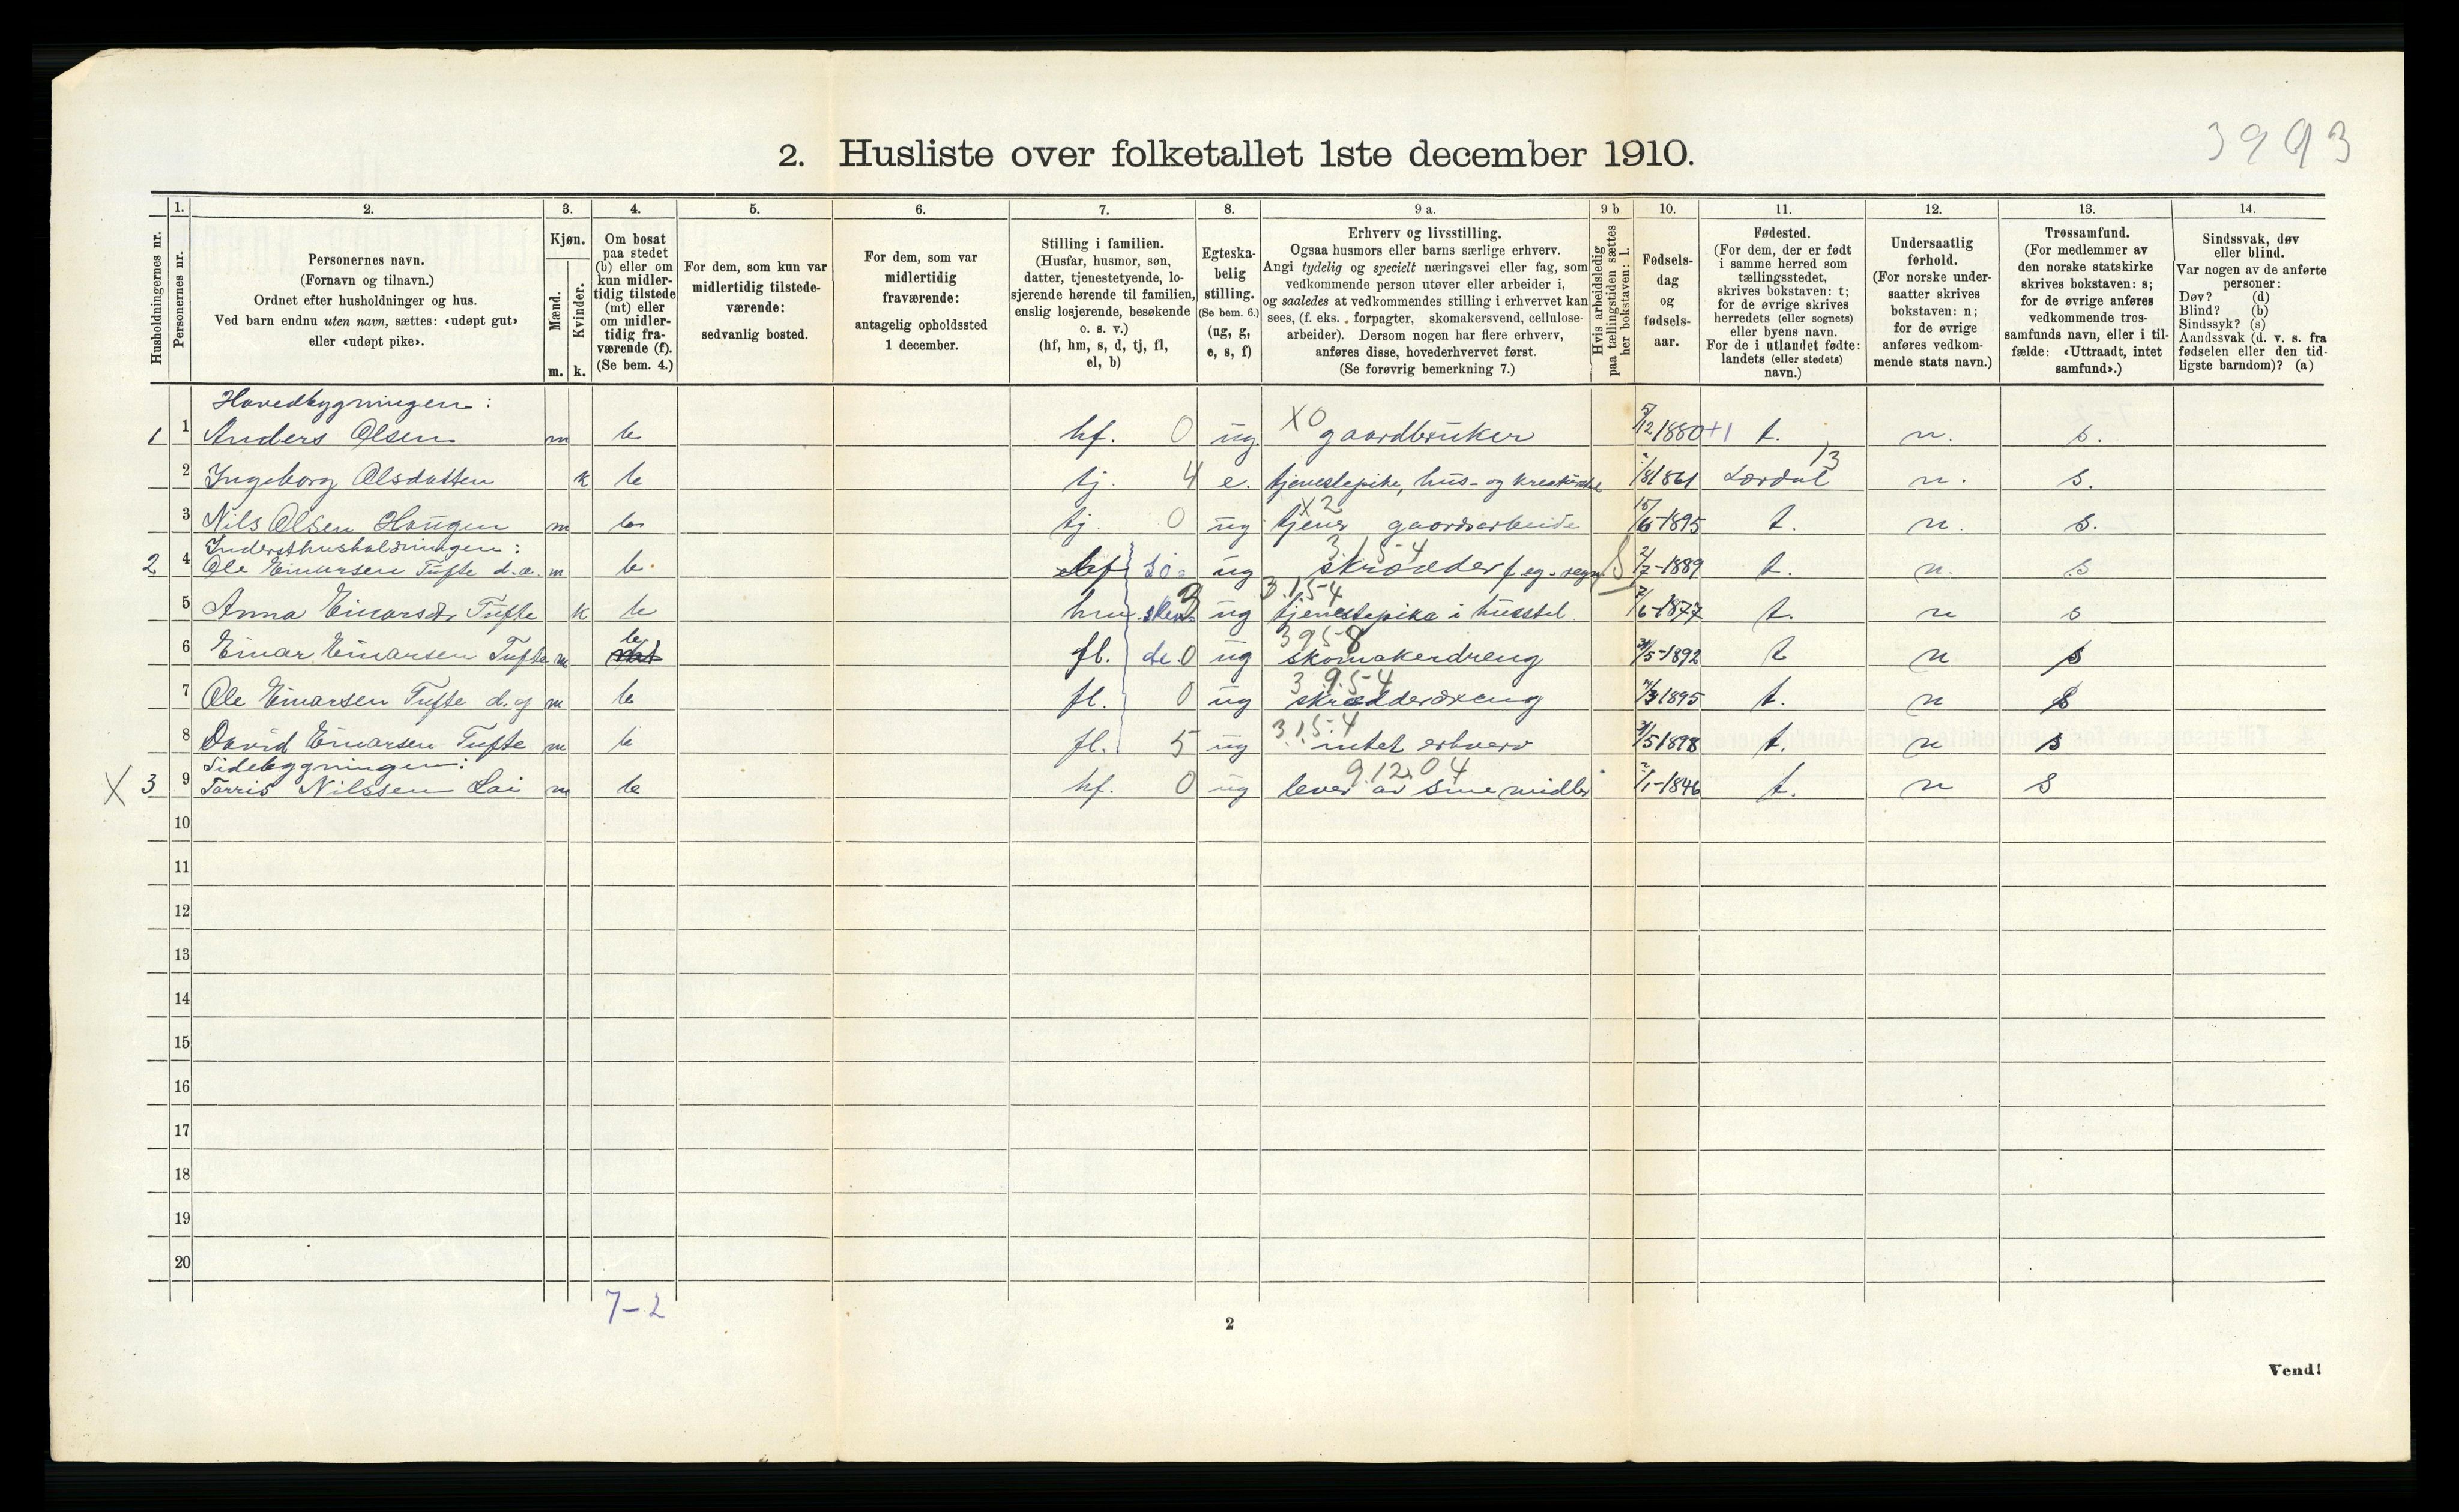 3993
2. Husliste over folketallet 1ste december 1910.
Husholdningernes nr.
1.
Personernes nr.
2.
Personernes navn.
(Fornavn og tilnavn.)
Ordnet efter husholdninger og hus.
Ved barn endnu uten navn, sættes: «udøpt gut»
eller «udøpt pike».
3.
Kjøn.
Mænd.
Kvinder.
m. k.
4.
Om bosat
paa stedet
(b) eller om
kun midler-
tidig tilstede
(mt) eller
om midler-
tidig fra-
værende (f).
(Se bem. 4.)
5.
For dem, som kun var
midlertidig tilstede-
værende:
sedvanlig bosted.
6.
For dem, som var
midlertidig
fraværende:
antagelig opholdssted
1 december.
7.
Stilling i familien.
(Husfar, husmor, søn,
datter, tjenestetyende, lo-
sjerende hørende til familien,
enslig losjerende, besøkende
o. s. v.)
(hf, hm, s, d, tj, fl,
el, b)
8.
Egteska-
belig
stilling.
(Se bem. 6.)
(ug, g,
e, s, f)
9 a.
Erhverv og livsstilling.
Ogsaa husmors eller barns særlige erhverv.
Angi tydelig og specielt næringsvei eller fag, som
vedkommende person utøver eller arbeider i,
og saaledes at vedkommendes stilling i erhvervet kan
sees, (f. eks. forpagter, skomakersvend, cellulose-
arbeider). Dersom nogen har flere erhverv,
anføres disse, hovederhvervet først.
(Se forøvrig bemerkning 7.)
9 b
Hvis arbeidsledig
paa tællingstiden sættes
her bokstaven: l.
10.
Fødsels-
dag
og
fødsels-
aar.
11.
Fødested.
(For dem, der er født
i samme herred som
tællingsstedet,
skrives bokstaven: t;
for de øvrige skrives
herredets (eller sognets)
eller byens navn.
For de i utlandet fødte:
landets (eller stedets)
navn.)
12.
Undersaatlig
forhold.
(For norske under-
saatter skrives
bokstaven: n;
for de øvrige
anføres vedkom-
mende stats navn.)
13.
Trossamfund.
(For medlemmer av
den norske statskirke
skrives bokstaven: s;
for de øvrige anføres
vedkommende tros-
samfunds navn, eller i til-
fælde: «Uttraadt, intet
samfund».)
14.
Sindssvak, døv
eller blind.
Var nogen av de anførte
personer:
Døv? (d)
Blind? (b)
Sindssyk? (s)
Aandssvak (d. v. s. fra
fødselen eller den tid-
ligste barndom)? (a)
Hovedbygningen:
1 1 Anders Olsen m b hf. 0 ug X0 gaardbruker 5/12 1880 +1 t. n. s.
2 Ingeborg Olsdatter k b tj. 4 e. tjenestepike, hus- og 1861 Lærdal 13 n. s.
3 Nils Olsen Haugen m b tj. 0 ug X2 tjener gaardsarbeide 15/6-1895 t. n. s.
Indersthusholdningen:
2 4 Ole Einarsen Tufte d.æ. m b hf sø= ug 315-4 skrædder f eg. regn. 2/7-1889 t. n. s
5 Anna Einarsdr Tufte k b 3 ug 3.15-4 tjenestepike i husstel 7/6-1877 t. n s
6 Einar Einarsen Tufte m b mt fl. de. 0 ug 395-8 skomakerdreng 31/5-1892 t n s
7 Ole Einarsen Tufte d.y m b fl. 0 ug 3.9.5-4 skrædderdreng 1895 t. n s
8 David Einarsen Tufte m b fl. 5 ug 3.15-4 intet erhverv 31/5 1898 t. n s
Sidebygningen:
X 3 9 Tarris Nilssen Lai m b hf. 0 ug 9.12.04 lever av sine midler 2/1-1846 t. n s
10
11
12
13
14
15
16
17
18
19
20
7-2
2
Vend!